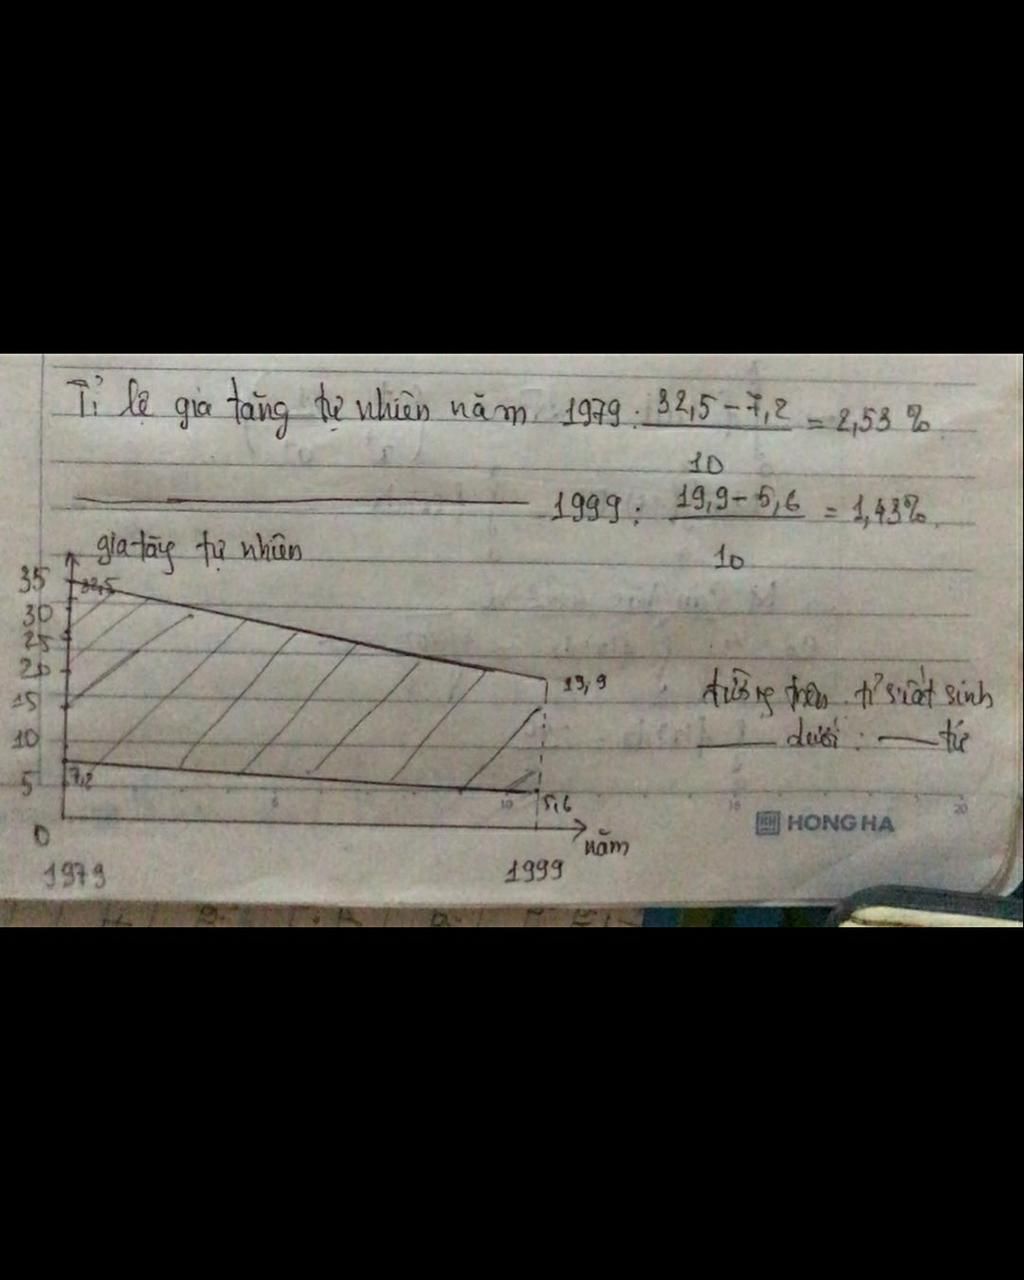 Tỉ lệ gia tăng tự nhiên năm 1979: 32,5 - 7,2 = 2,53 %
10
1999: 19,9 - 5,6 = 1,43%
10
gia tăg tự nhiên
35
32,5
30
25
20
19,9
15
đường trên tỉ suất sinh
10
dưới: tử
7,2
5
5,6
5
10
15
20
HONG HA
0
năm
1979
1999